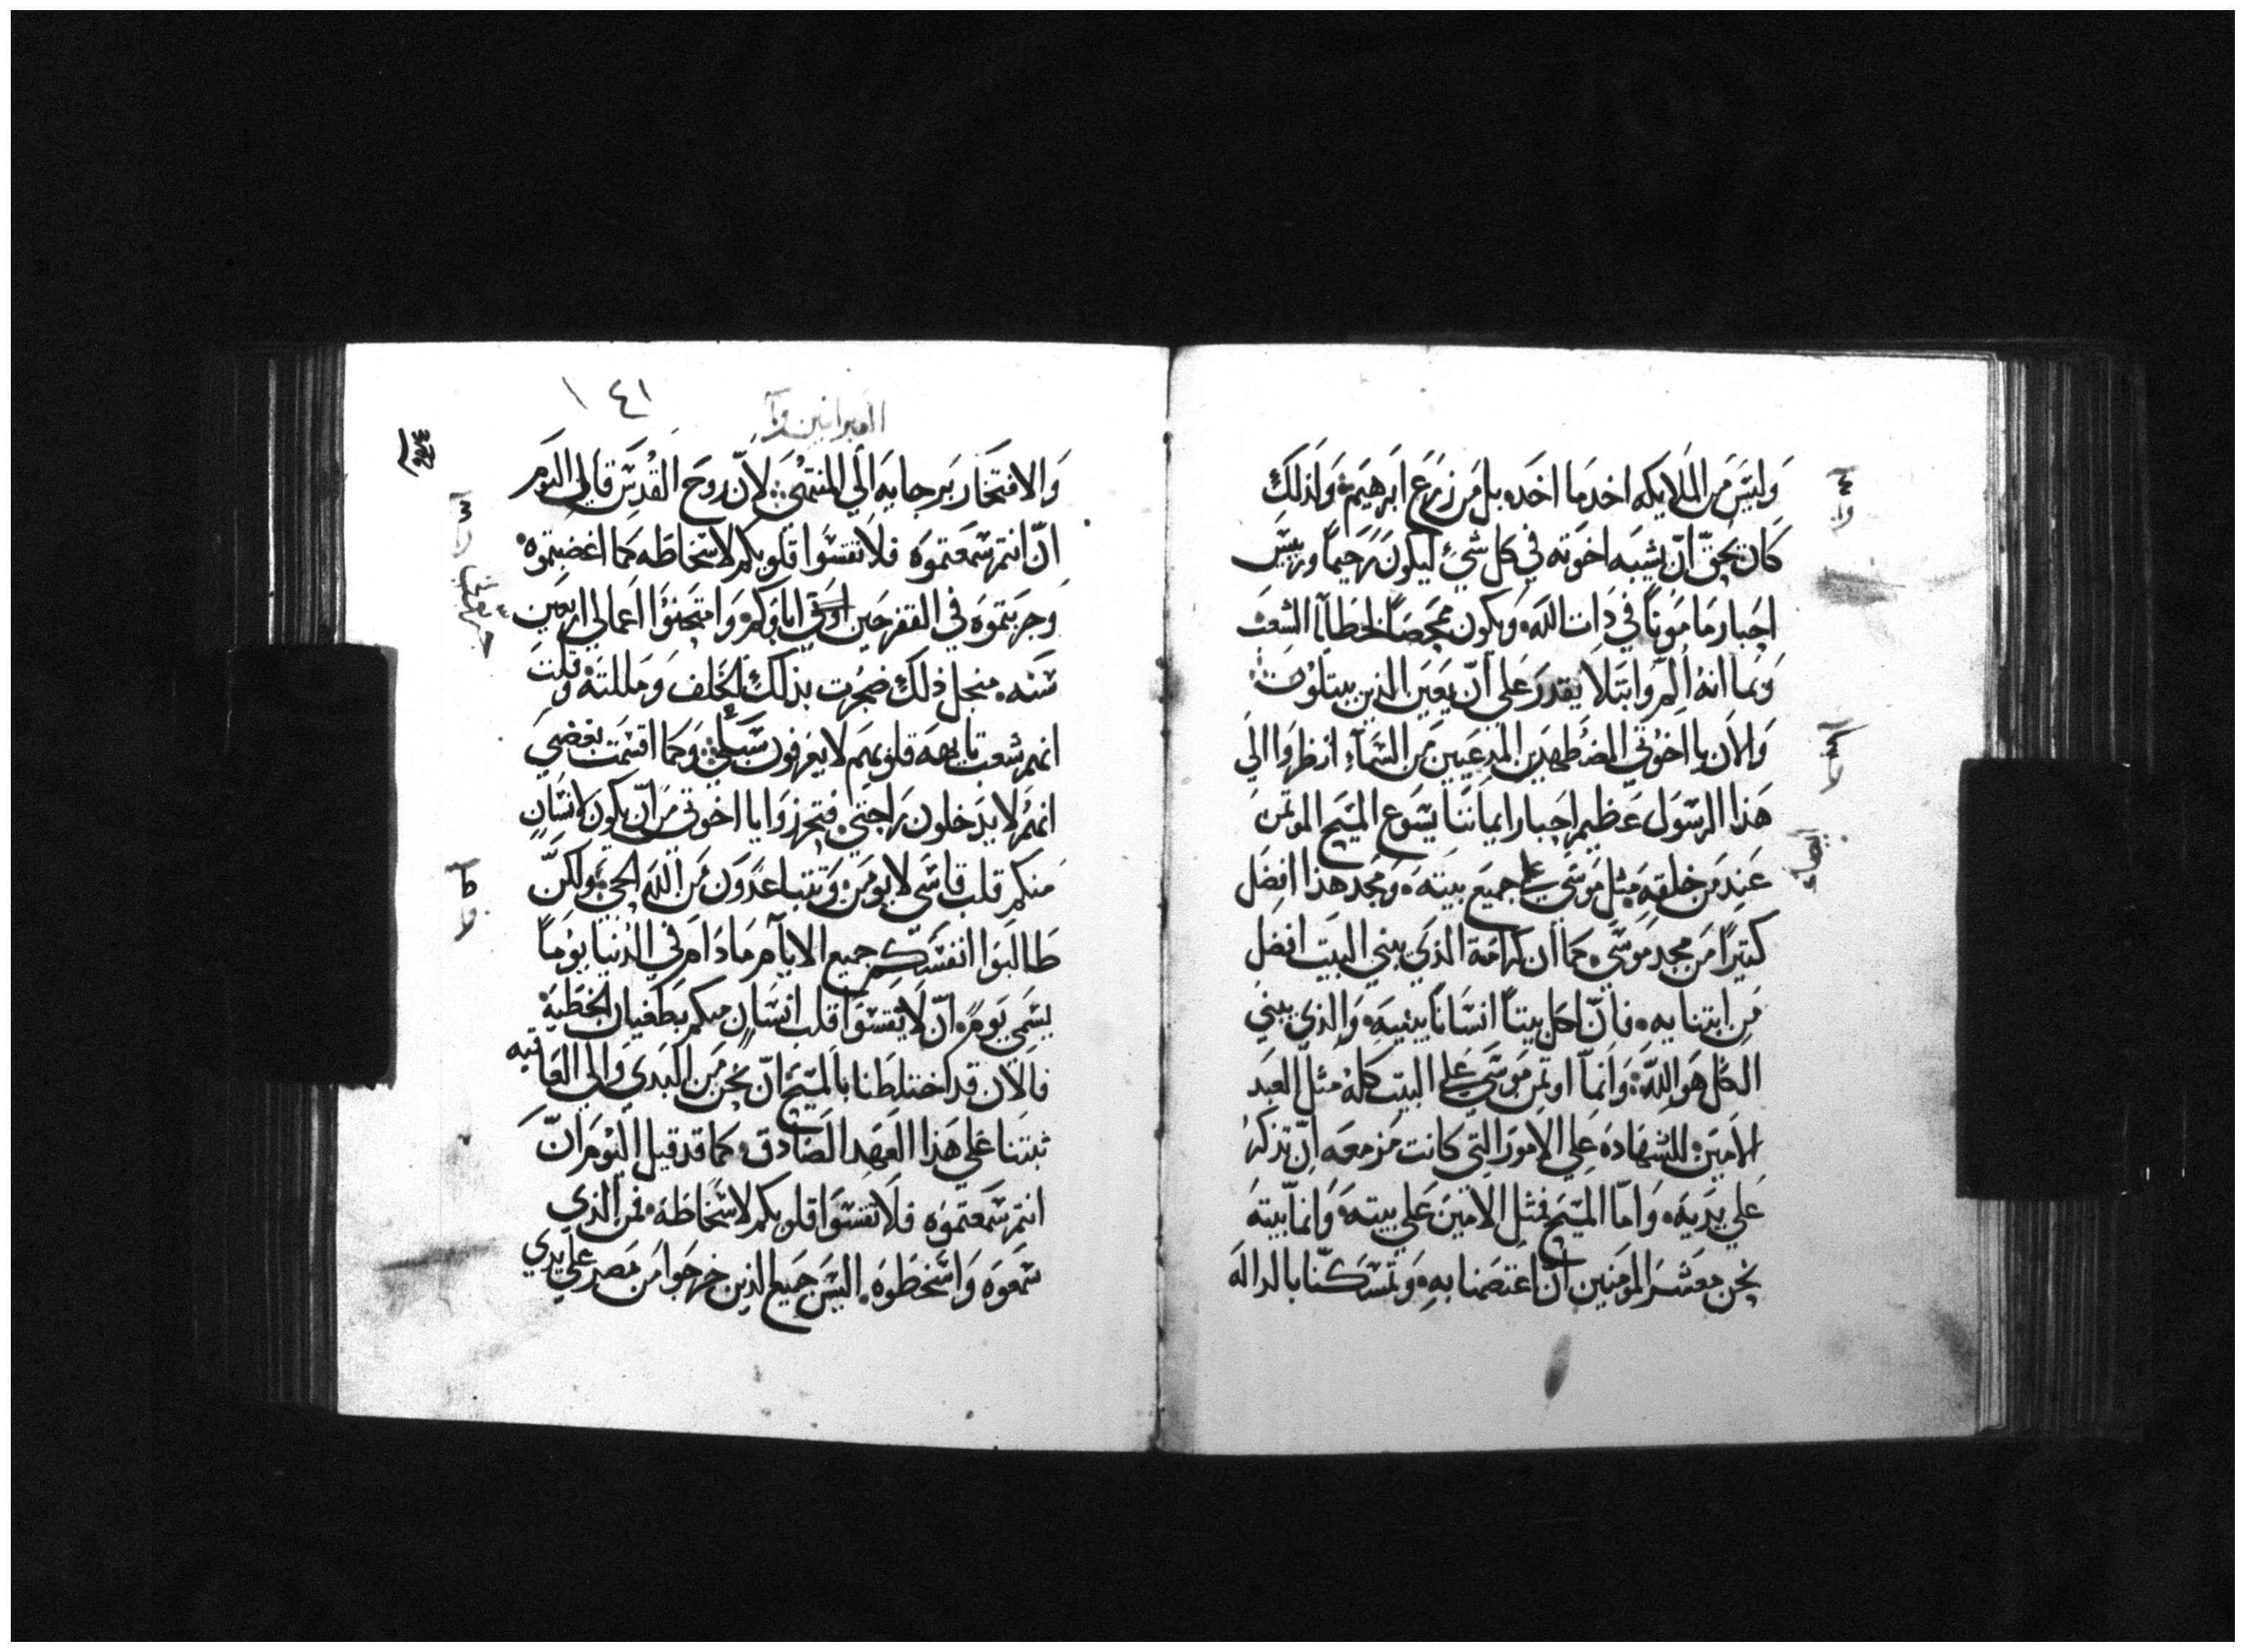 وَليَس مَن المَلايكه اخد ما اخَده بل مَن زرَع ابَرهيَم وَلذلَك
كَان يحَق ان يشبَه اخوَته في كل شيء ليَكونَ رَحَيماً وريَيَس
احَبار مَامَوناً في ذات الله وَيكون مَمحَصاً لخطايا الشعَب
وَبما انهُ المَ وابتَلا يقدرَ عَلي ان يَعَين الذين يبتلوُن
وَالان يا اخوُتي المضَطهدَين المدعَيين مَن السَماءِ انظروَا الي
هَذا الرسَول عَظيم احَبار ايماننا يَسَوع المسَيح المؤتمن
عَند مَن خلقهِ مَثل موَسَي علي جميَع بيتهَ وَمجد هذا افضَل
كتيَراً مَن مجد مَوسَي كمَا ان كرامَة الذيَ يبني البيَت افضَل
مَن ابتنايه فان لكل بيتاً انسَاناً يبنيهَ وَالذيَ يبني
الكل هوَ اللهَ وَانما اوتمن مَوسَي علي البيت كلهُ مثل العَبد
الامَين للشهادَه عَلي الامورَ التَي كانت مَزمعَه انَ تذكر
عَلي يدَيهَ وَامَا المسَيح فمثل الامَين عَلي بيتهَ وَانما بيتهَ
نحن معَشر المومَنين ان اعَتصَمنا بهِ وَتمسَكنا بالدالَه
١٤١
العبرانيين
وَالافتخَار برجايه الي المنتهَي لان روحَ القُدسَ قايل اليَوم
ان انتم سَمعتموَه فلا تقسَوا قلوبكم لاسَخاطه كما اغضبتموه
وَجربتموَه في القفر حَين اباوكم وَامتحَنوُا اعمالي اربعَين
سَنه منجل ذلَك ضجرُت بذلك الخلف وَمللتهُ وَقلت
انهم شعَب تايهه قلوبهم لا يعَرفون سَبلي وَكما اقسَمت بغضبي
انهم لا يدَخلون رَاحتي فتحرزوَا يا اخوتي مَن ان يكون لانسَان
منكم قلب قاسَي لا يومن وَتتباعَدوَن مَن الله الحي وَلكن
طَالبوَا انفسَكم جميع الايام مَا دَام في الدنيا يوَماً
يسَمي يَوم ان لا يقسوَا قلب انسَان منكم بطَغيان الخطيَه
فالان قد اختلطنا بالمسَيح ان نحن مَن البَدي وَالي العَاقبه
ثبتنا عَلي هَذا العَهد الصَادق كما قد قيل اليَوم ان
انتم سَمعتموَه فلا تقسَوا قلوبكم لاسَخاطه فمن الذي
سَمعَوه وَاسَخطوَه اليسَ جميع الذين خرجوَا مَن مَصر علي يدي